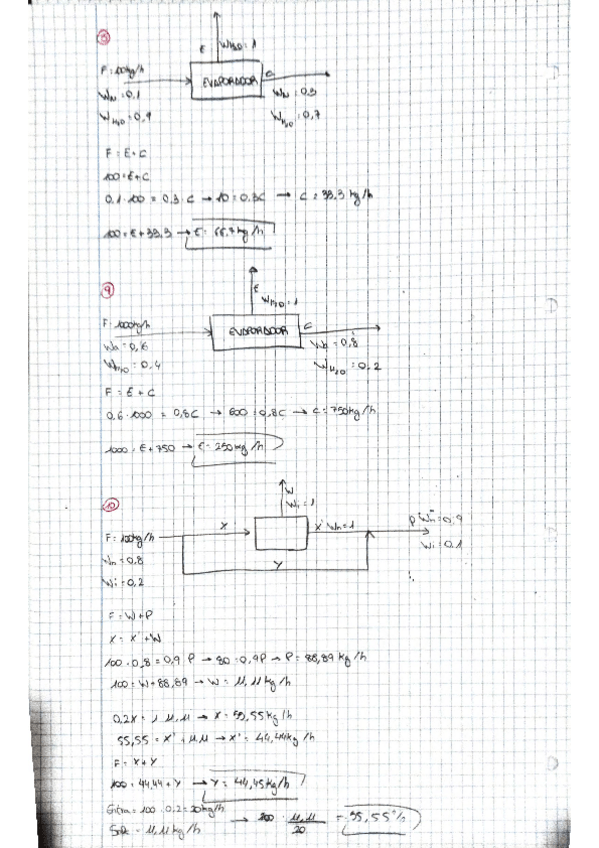 8
E W_H2O = 1
F = 100 kg/h
EVAPORADOR
C
W_N = 0,1
W_N = 0,3
W_H2O = 0,9
W_H2O = 0,7
F = E + C
100 = E + C
0,1 · 100 = 0,3 · C → 10 = 0,3C → C = 33,3 kg/h
100 = E + 33,3 → E = 66,7 kg/h
9
E
W_H2O = 1
F = 1000 kg/h
EVAPORADOR
C
W_n = 0,6
W_n = 0,8
W_H2O = 0,4
W_H2O = 0,2
F = E + C
0,6 · 1000 = 0,8C → 600 = 0,8C → C = 750 kg/h
1000 = E + 750 → E = 250 kg/h
10
W
W_i = 1
F = 100 kg/h
X
X' W_n = 1
P W_n = 0,9
W_i = 0,1
W_n = 0,8
Y
W_i = 0,2
F = W + P
X = X' + W
100 · 0,8 = 0,9 P → 80 = 0,9P → P = 88,89 kg/h
100 = W + 88,89 → W = 11,11 kg/h
0,2X = 1 · 11,11 → X = 55,55 kg/h
55,55 = X' + 11,11 → X' = 44,44 kg/h
F = X + Y
100 = 44,44 + Y → Y = 44,45 kg/h
Entra = 100 · 0,2 = 20 kg/h
Sale = 11,11 kg/h → 100 · 11,11/20 = 55,55 %